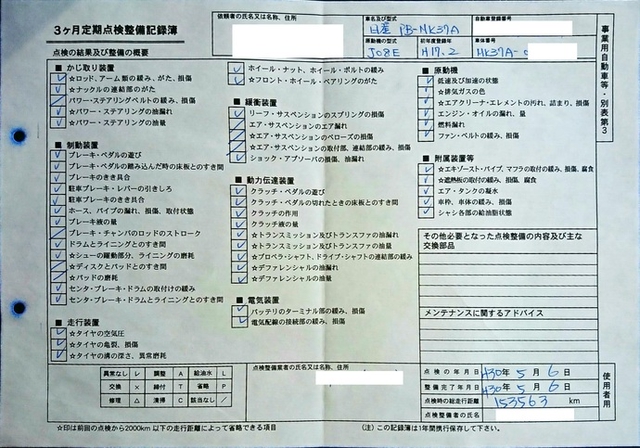 3ヶ月定期点検整備記録簿
点検の結果及び整備の概要
依頼者の氏名又は名称、住所
車名及び型式
日産 PB-MK37A
自動車登録番号
原動機の型式
J08E
初年度登録年
H17.2
車体番号
MK37A-
事業用自動車等・別表第3
■ かじ取り装置
☆ロッド、アーム類の緩み、がた、損傷
☆ナックルの連結部のがた
パワー・ステアリングベルトの緩み、損傷
☆パワー・ステアリングの油漏れ
☆パワー・ステアリングの油量
■ 制動装置
ブレーキ・ペダルの遊び
ブレーキ・ペダルの踏み込んだ時の床板とのすき間
ブレーキのきき具合
駐車ブレーキ・レバーの引きしろ
駐車ブレーキのきき具合
ホース、パイプの漏れ、損傷、取付状態
ブレーキ液の量
ブレーキ・チャンバのロッドのストローク
ドラムとライニングとのすき間
☆シューの摺動部分、ライニングの磨耗
☆ディスクとパッドとのすき間
☆パッドの磨耗
センタ・ブレーキ・ドラムの取付けの緩み
センタ・ブレーキ・ドラムとライニングとのすき間
■ 走行装置
☆タイヤの空気圧
☆タイヤの亀裂、損傷
☆タイヤの溝の深さ、異常磨耗
ホイール・ナット、ホイール・ボルトの緩み
☆フロント・ホイール・ベアリングのがた
■ 緩衝装置
リーフ・サスペンションのスプリングの損傷
エア・サスペンションのエア漏れ
☆エア・サスペンションのベローズの損傷
☆エア・サスペンションの取付部、連結部の緩み、損傷
ショック・アブソーバの損傷、油漏れ
■ 動力伝達装置
クラッチ・ペダルの遊び
クラッチ・ペダルの切れたときの床板とのすき間
クラッチの作用
クラッチ液の量
☆トランスミッション及びトランスファの油漏れ
☆トランスミッション及びトランスファの油量
☆プロペラ・シャフト、ドライブ・シャフトの連結部の緩み
☆デファレンシャルの油漏れ
☆デファレンシャルの油量
■ 電気装置
バッテリのターミナル部の緩み、損傷
電気配線の接続部の緩み、損傷
■ 原動機
低速及び加速の状態
☆排気ガスの色
☆エアクリーナ・エレメントの汚れ、詰まり、損傷
エンジン・オイルの漏れ、量
燃料漏れ
ファン・ベルトの緩み、損傷
■ 附属装置等
☆エキゾースト・パイプ、マフラの取付の緩み、損傷、腐食
☆遮熱板の取付の緩み、損傷、腐食
エア・タンクの凝水
車枠、車体の緩み、損傷
シャシ各部の給油脂状態
その他必要となった点検整備の内容及び主な交換部品
メンテナンスに関するアドバイス
異常なし レ 調整 A 給油水 L
交換 × 締付 T 省略 P
修理 △ 清掃 C 該当なし ／
点検整備業者の氏名又は名称、住所
点検の年月日 H30年 5月 6日
整備完了年月日 H30年 5月 6日
点検時の総走行距離 153563 km
点検整備者の氏名
使用者用
☆印は前回の点検から2000km以下の走行距離によって省略できる項目
(注)この記録簿は1年間携行保存して下さい。